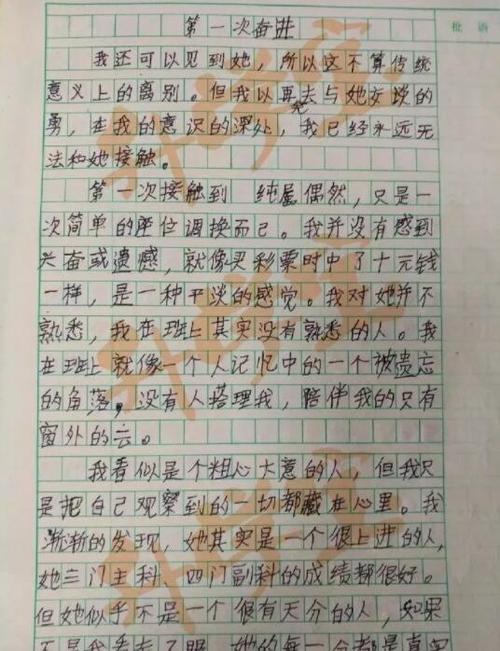 第一次奋进
批语
我还可以见到她，所以这不算传统
意义上的离别。但我以再去与她交谈的
勇，在我的意识的深处，我已经永远无
法和她接触。
第一次接触到 纯属偶然，只是一
次简单的座位调换而已。我并没有感到
兴奋或遗憾，就像买彩票时中了十元钱
一样，是一种平淡的感觉。我对她并不
熟悉，我在班上其实没有熟悉的人。我
在班上就像一个人记忆中的一个被遗忘
的角落，没有人搭理我，陪伴我的只有
窗外的云。
我看似是个粗心大意的人，但我只
是把自己观察到的一切都藏在心里。我
渐渐的发现，她其实是一个很上进的人，
她三门主科、四门副科的成绩都很好。
但她似乎不是一个很有天分的人，如果
不是我看走了眼，她的每一分都是真实